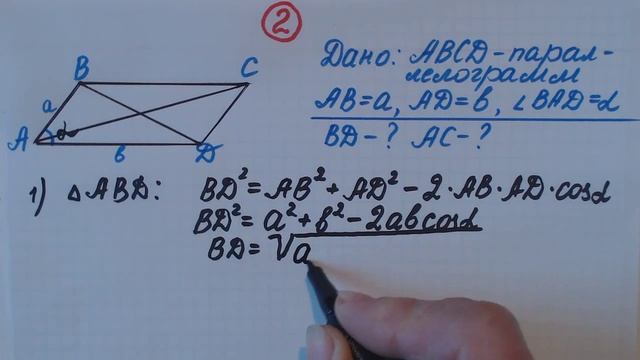 2
B
C
a
A
α
в
D
Дано: ABCD - парал-
лелограмм
AB=a, AD=в, ∠BAD=α
BD-? AC-?
1) △ABD: BD²=AB²+AD²-2·AB·AD·cosα
BD²=a²+в²-2aвcosα
BD=√a